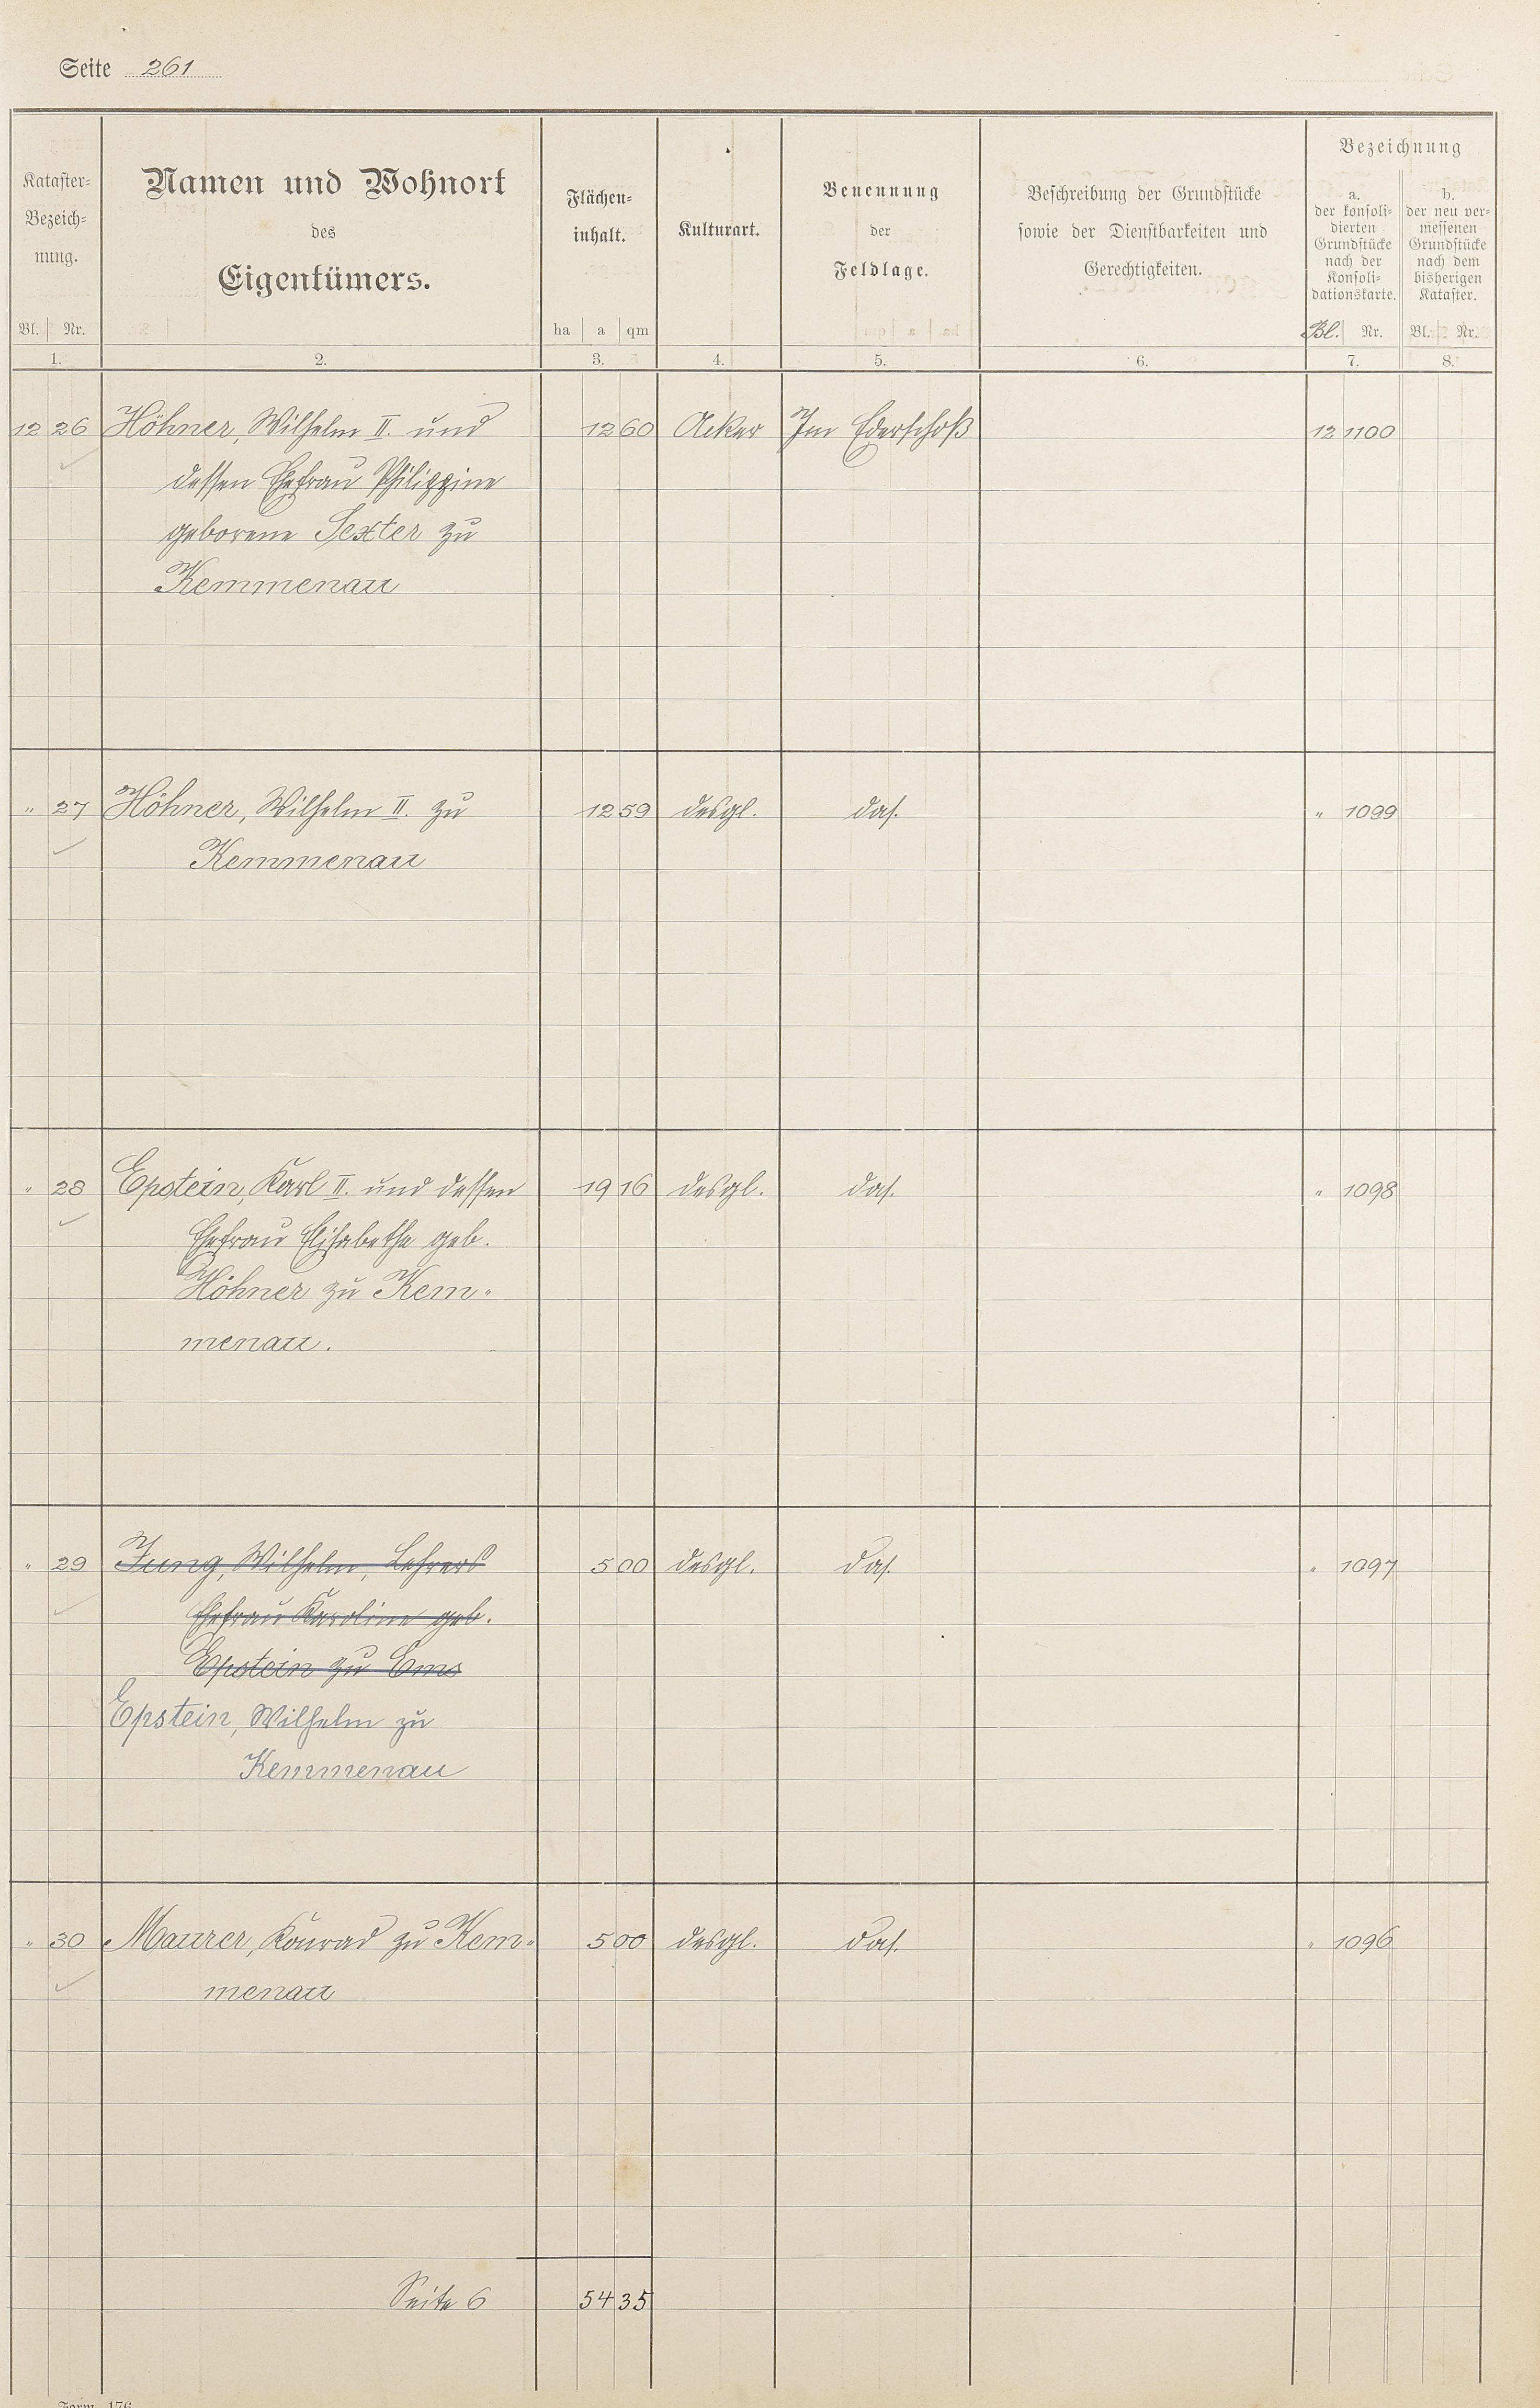 Seite 261
Kataster-
Bezeich-
nung.
Bl. Nr.
1.
Namen und Wohnort
des
Eigentümers.
2.
Flächen-
inhalt.
ha a qm
3.
Kulturart.
4.
Benennung
der
Feldlage.
5.
Beschreibung der Grundstücke
sowie der Dienstbarkeiten und
Gerechtigkeiten.
6.
Bezeichnung
a.
der konsoli-
dierten
Grundstücke
nach der
Konsoli-
dationskarte.
Bl. Nr.
7.
b.
der neu ver-
messenen
Grundstücke
nach dem
bisherigen
Kataster.
Bl. Nr.
8.
12 26 Höhner, Wilhelm II. und 12 60 Acker Im Ederschoß 12 1100
dessen Ehefrau Philippine
geborene Sexter zu
Kemmenau
" 27 Höhner, Wilhelm II. zu 12 59 desgl. das. " 1099
Kemmenau
" 28 Epstein, Karl II. und dessen 19 16 desgl. das. " 1098
Ehefrau Elisabethe geb.
Höhner zu Kem-
menau.
" 29 Jung, Wilhelm, Lehrers 5 00 desgl. das. " 1097
Ehefrau Karoline geb.
Epstein zu Ems
Epstein, Wilhelm zu
Kemmenau
" 30 Maurer, Konrad zu Kem- 5 00 desgl. das. " 1096
menau
Seite 6 54 35
Form. 176